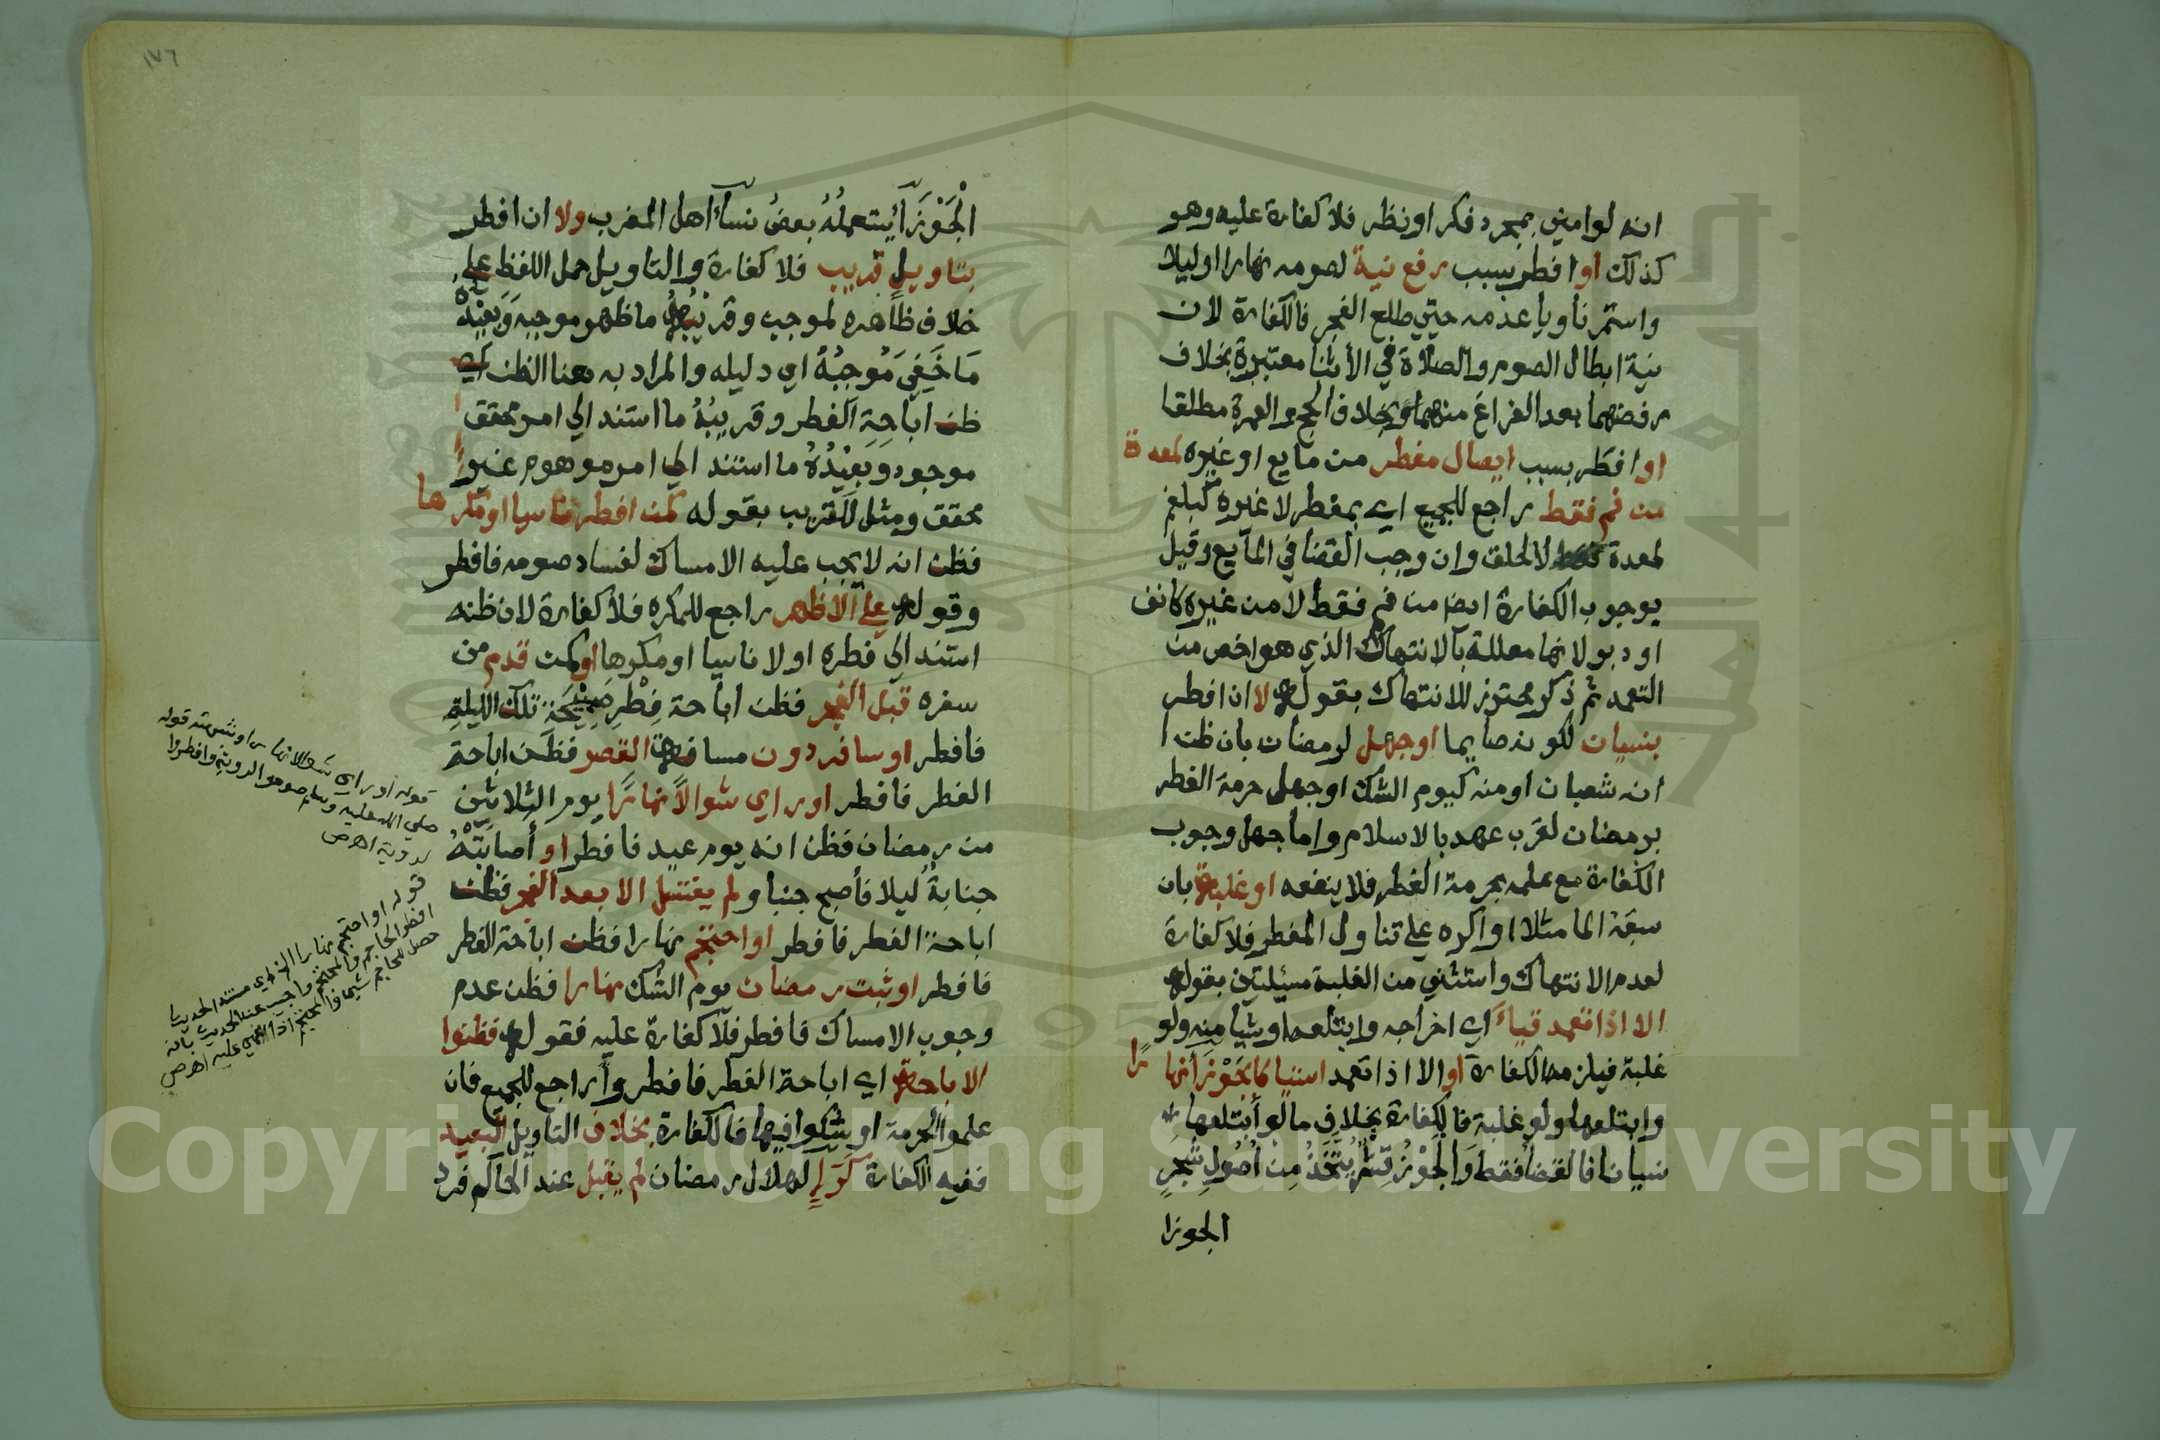 انه لوامني بمجرد فكر او نظر فلا كفارة عليه وهو
كذلك او افطر بسبب رفع نية لصومه نهارا اوليلا
واستمر ناويا عدمه حتي طلع الفجر فالكفارة لان
نية ابطال الصوم والصلاة في الأثنا معتبرة بخلاف
رفضهما بعد الفراغ منهما وبخلاف الحج والعمرة مطلقا
او افطر بسبب ايصال مفطر من مايع او غيره لمعدة
من فم فقط راجع للجميع اي بمفطر لا غيره كبلغم
لمعدة لا لحلق وان وجب القضا في المآيع وقيل
بوجوب الكفارة ايضا من فم فقط لا من غيره كانف
او دبر لانها معللة بالانتهاك الذي هو اخص من
التعمد ثم ذكر محترز الانتهاك بقوله لا ان افطر
بنسيان لكونه صايما اوجهل لرمضان بان ظن
انه شعبان او منه كيوم الشك اوجهل حرمة الفطر
برمضان لقرب عهد بالاسلام واما جهل وجوب
الكفارة مع علمه بحرمة الفطر فلا ينفعه او غلبة بان
سبقه الما مثلا او اكره علي تناول المفطر فلا كفارة
لعدم الانتهاك واستثني من الغلبة مسئلتين بقوله
الا اذا تعمد قياً اي اخراجه وابتلعه او شيا منه ولو
غلبة فيلزمه الكفارة او الا اذا تعمد استياكا بجوزا نهارا
وابتلعها ولو غلبة فالكفارة بخلاف ما لو أبتلعها
نسيانا فالقضأ فقط وَالجَوْز قشر يُتَّخَذُ مِنْ اُصُولِ شجَرِ
الجوزا
١٧٦
الْجَوْزَآ يستعملُهُ بعضُ نسآء اهل المغرب ولا ان افطر
بتاويل قريب فلا كفارة والتاويل حمل اللفظ علي
خلاف ظاهره لموجب وقريبه ما ظهر موجبه وَبَعِيْدُهُ
مَا خَفِيَ مُوجِبُهُ اي دليله والمراد به هنا الظن اي
ظن اباحَةِ الفطر وقريبُهُ ما استند الي امر محقق
موجود وَبَعِيْدُهُ ما استند الي امر موهوم غير
محقق ومثل للقريب بقوله كمن افطر ناسيا او مكرها
فظن انه لا يجب عليه الامساك لفساد صومه فافطر
وقوله علي الاظهر راجع للمكره فلا كفارة لان ظنه
استند الي فطره اولا ناسيا او مكرها اوكمن قدم من
سفره قبل الفجر فظن اباحة فِطْرِ صَبِيْحَة تلك الليلة
فافطر او سافر دون مسافة القصر فظن اباحة
الفطر فافطر او راي شوالاً نهارًا يوم الثلاثين
من رمضان فظن انه يوم عيد فافطر او أصابَتْهُ
جنابةٌ ليلا فأصبح جنبا ولم يغتسل الا بعد الفجر فظن
اباحة الفطر فافطر او احتجم نهارا فظن اباحة الفطر
فافطر او ثبت رمضان يوم الشك نهارا فظن عدم
وجوب الامساك فافطر فلا كفارة عليه فقوله فظنوا
الاباحة اي اباحة الفطر فافطروا راجع للجميع فان
علموا الحرمة او شكوا فيها فالكفارة بخلاف التاويل البعيد
ففيه الكفارة كَرَاءٍ لهلال رمضان لم يقبل عند الحاكم فرد
قوله او راي شوالا نهارا وشبهته قوله
صلي الله عليه وسلم صوموا لرويته وافطروا
لرويته اهـ ص
قوله او احتجم نهارا الذي مستند الحديث
افطر الحاجم والمحتجم واجيب عن الحديث بانه
Copyright © King Saud University
1957